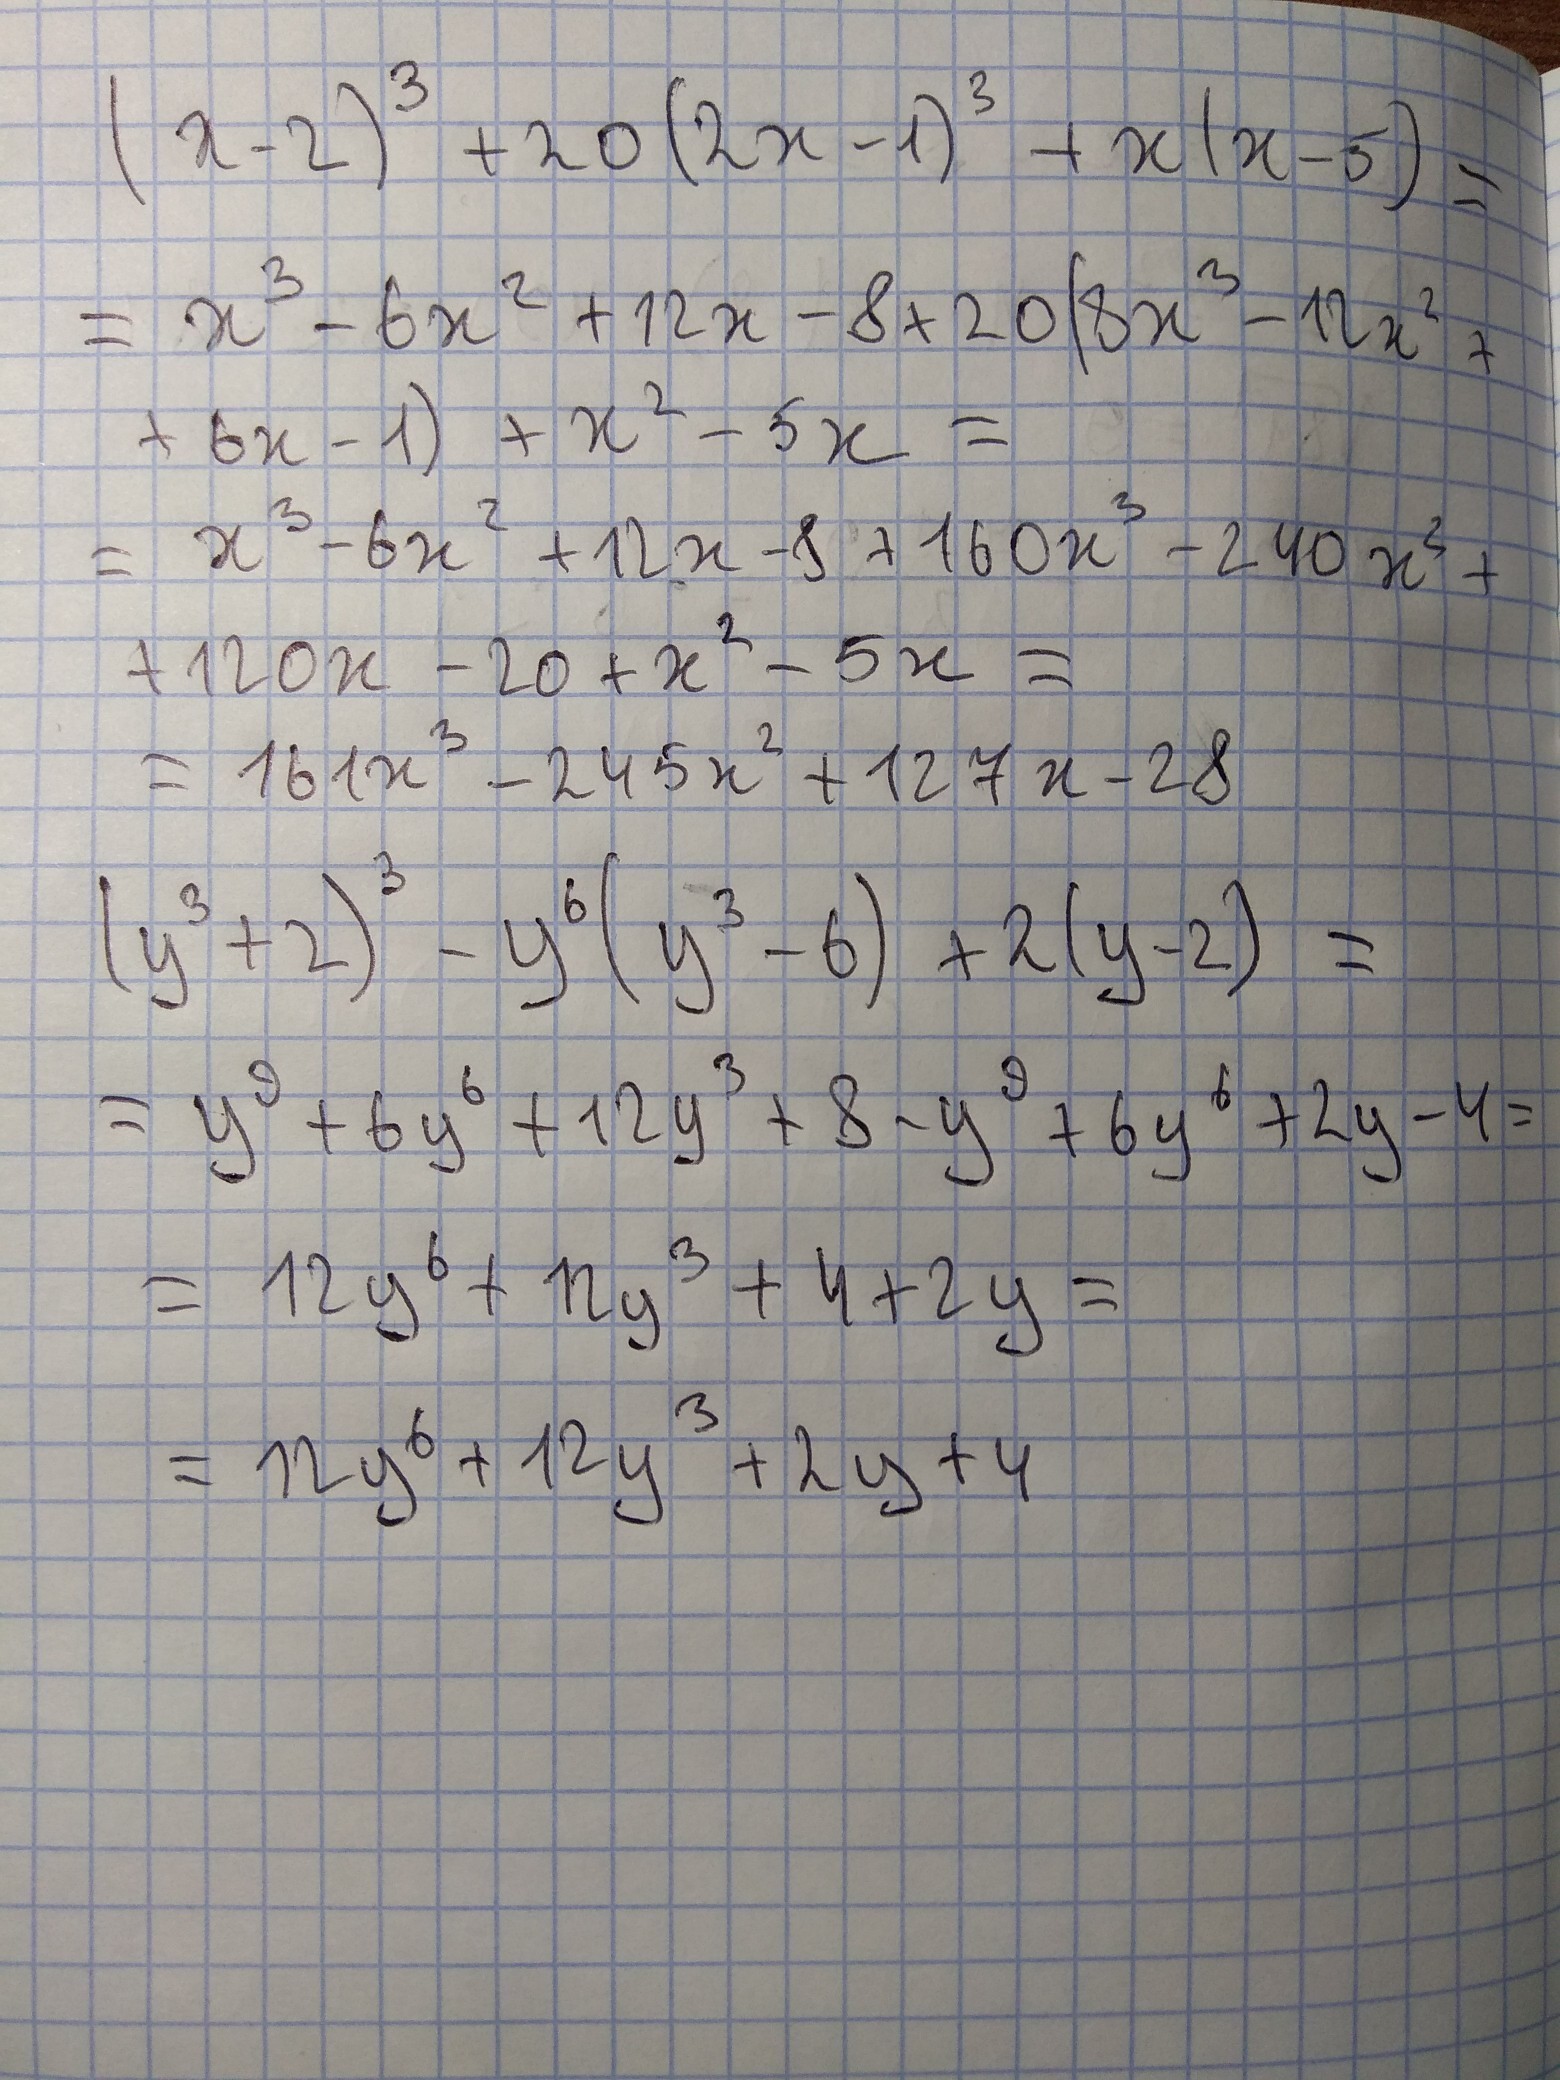 (x-2)³ + 20(2x-1)³ + x(x-5) =
= x³ - 6x² + 12x - 8 + 20(8x³ - 12x² +
+ 6x - 1) + x² - 5x =
= x³ - 6x² + 12x - 8 + 160x³ - 240x² +
+ 120x - 20 + x² - 5x =
= 161x³ - 245x² + 127x - 28
(y³ + 2)³ - y⁶(y³ - 6) + 2(y-2) =
= y⁹ + 6y⁶ + 12y³ + 8 - y⁹ + 6y⁶ + 2y - 4 =
= 12y⁶ + 12y³ + 4 + 2y =
= 12y⁶ + 12y³ + 2y + 4